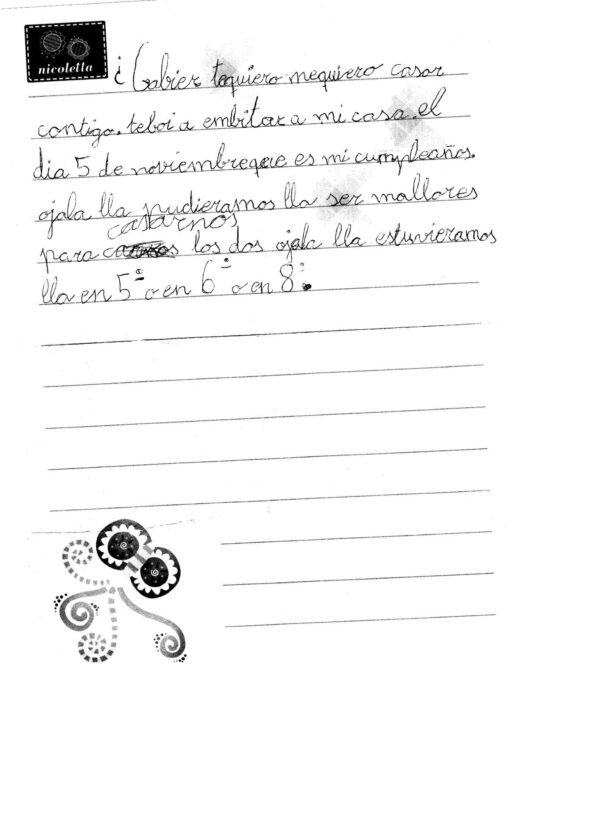 nicoletta
¿ Gabier tequiero mequiero casar
contigo. teboi a embitar a mi casa. el
dia 5 de noviembreque es mi cumpleaños.
ojala lla pudieramos lla ser mallores
casarnos
para los dos ojala lla estuvieramos
lla en 5º o en 6º o en 8º.